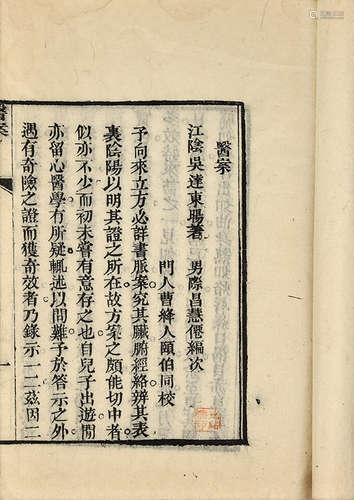 醫案
江陰吳達東暘著　男際昌慧僊編次
門人曹絳人頤伯同校
予向來立方必詳書脈案究其臟腑經絡辨其表
裏陰陽以明其證之所在故方案之頗能切中者
似亦不少而初未嘗有意存之也自兒子出遊閒
亦留心醫學有所疑輒述以問難予於答示之外
遇有奇險之證而獲奇效者乃錄示一二茲因二
醫案
一